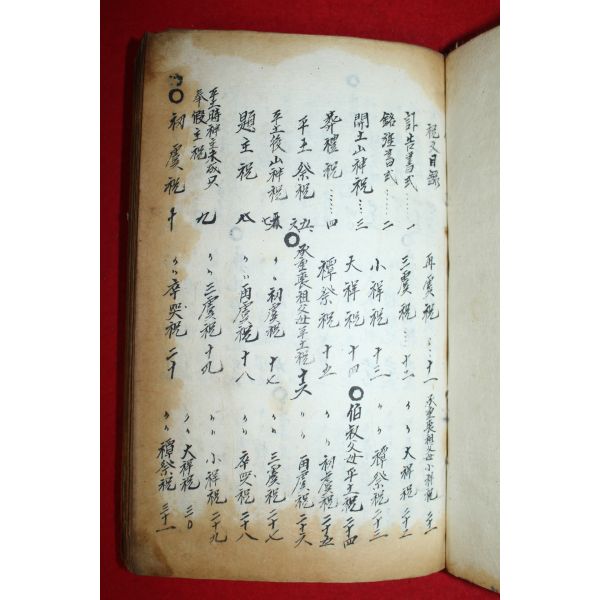 祝文目錄
訃告書式……一
銘旌書式……二
開土山神祝……三
葬禮祝……四
平土祭祝 五
平土後山神祝 七
題主祝 八
平土時神主未成只
奉假主祝 九
〇初虞祝 十
再虞祝……十一
三虞祝……十二
小祥祝 十三
大祥祝 十四
禫祭祝 十五
〇承重喪祖父母平土祝 十六
〃初虞祝 十七
〃再虞祝 十八
〃三虞祝 十九
〃卒哭祝 二十
承重喪祖父母小祥祝 二十一
〃大祥祝 二十二
〃禫祭祝 二十三
〇伯叔父母平土祝 二十四
〃初虞祝 二十五
〃再虞祝 二十六
〃三虞祝 二十七
〃卒哭祝 二十八
〃小祥祝 二十九
〃大祥祝 三〇
〃禫祭祝 三十一